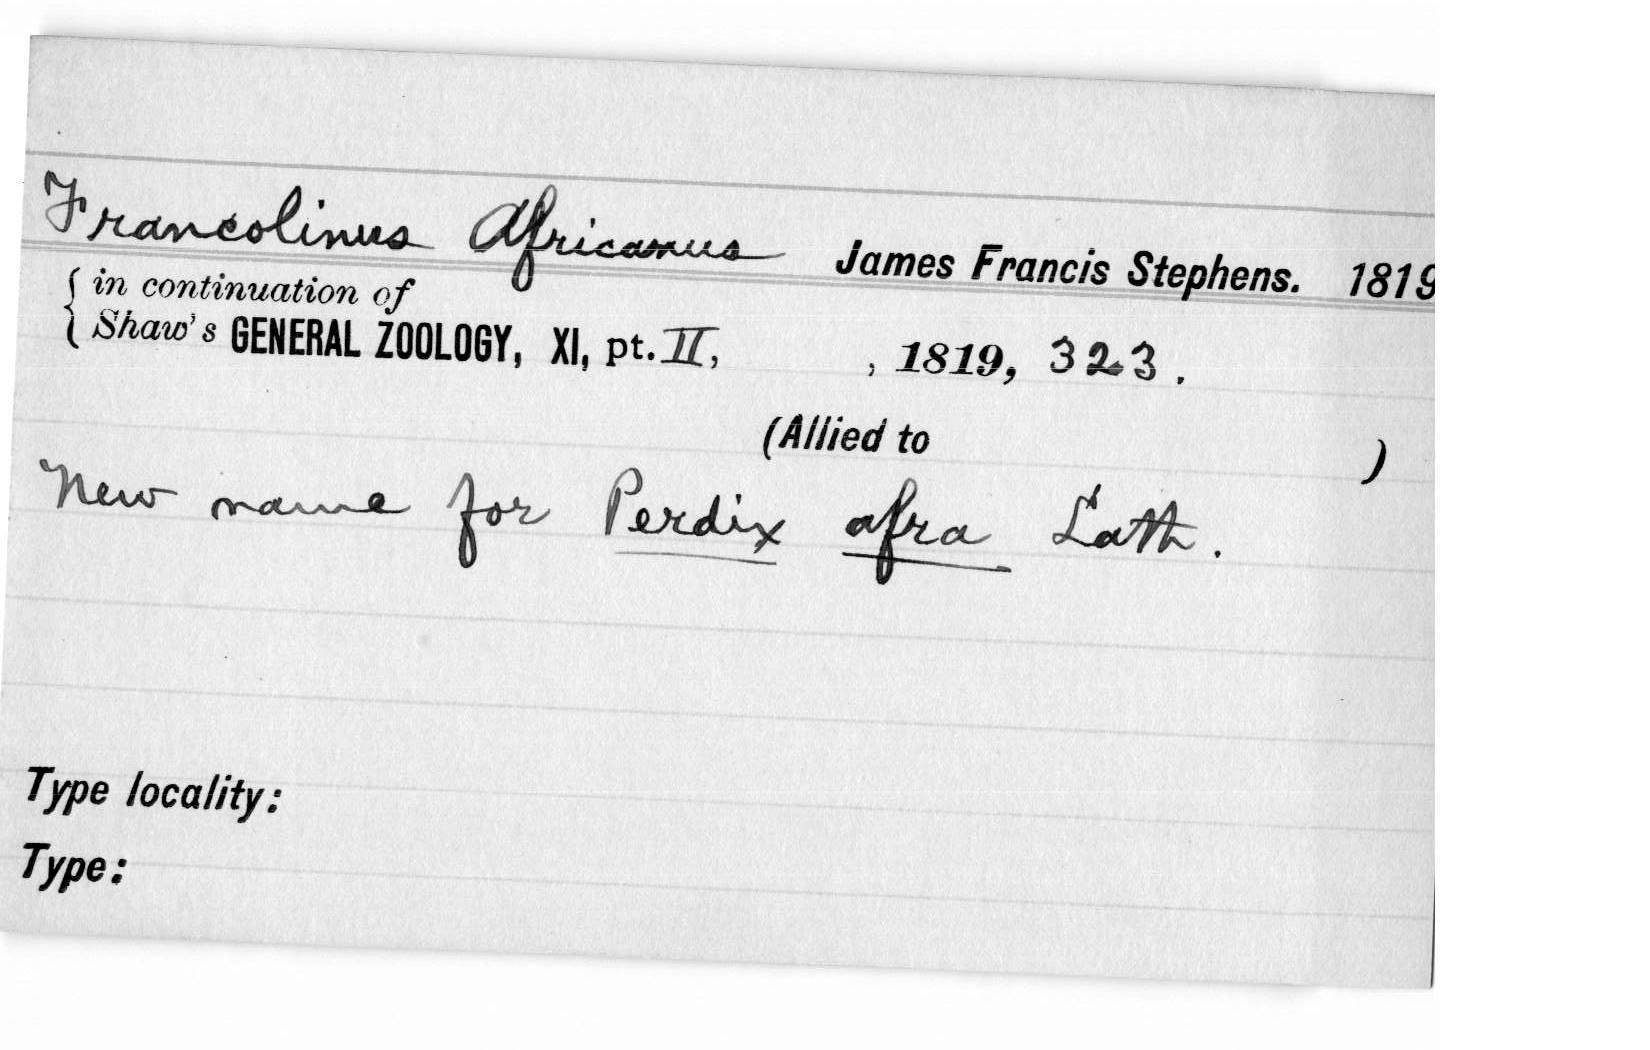 Francolinus Africanus James Francis Stephens. 1819
{ in continuation of
{ Shaw's GENERAL ZOOLOGY, XI, pt. II, , 1819, 323.
(Allied to )
New name for Perdix afra Lath.
Type locality:
Type: